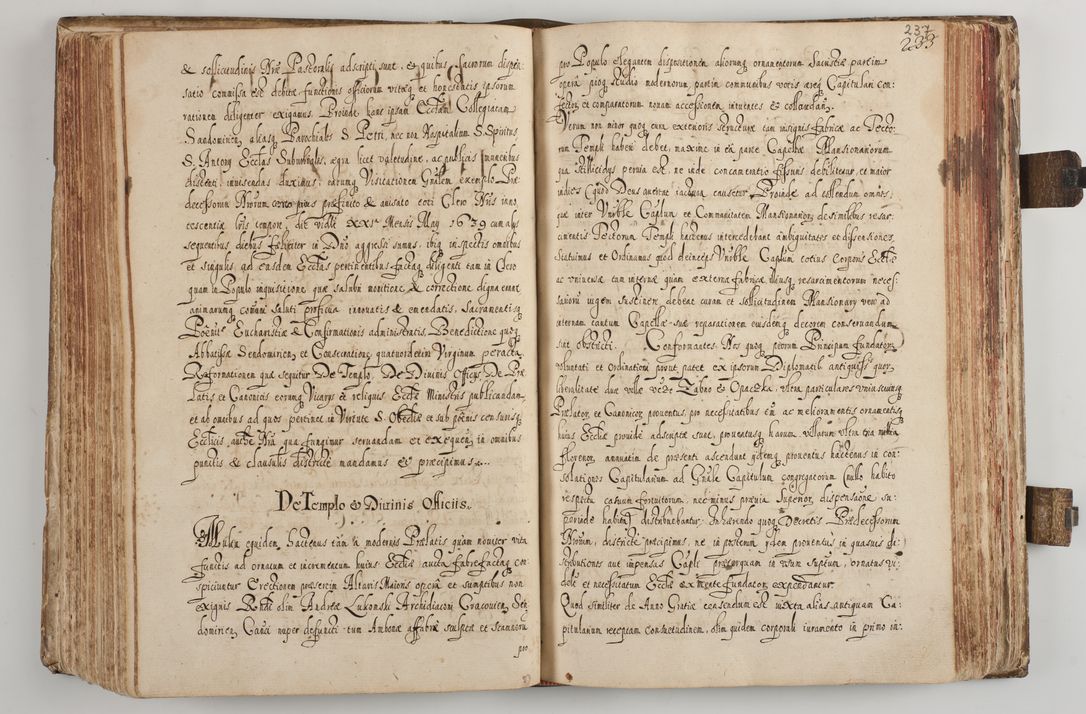 & sollicitudinis Nræ Pastoralis adscripti sunt, et quibus sacrorum dispen:
satio commissa est debitæ functionis officiorum vitæq et honestatis ipsorum
rationem diligenter exigamus Proinde hanc ipsam Ecclam Collegiatam
Sandomirien. aliasq Parochiales S. Petri, nec non Hospitalium S. Spiritus
S. Antony Ecclas Suburbales, ægra licet valetudine, ac publicis muneribus
distenti, inuisendas duximus, earumq Visitationem Gnalem exemplo Præ:
decessorum Nrorum præfinito & auisato toti Clero Nris inno
tescentiæ lris tempore die videlt XXI Mensis May 1639 cum alijs
sequentibus diebus feliciter in Dno aggressi sumus, ibiq inspectis omnibus
et singulis ad easdem Ecclas pertinentibus factaq diligenti tam in Clero
quam in Populo inquisitione quæ salubri monitione & correctione digna erant
animarumq comuni saluti proficua innouatis & emendatis, Sacramentisq
Pœniæ Eucharistiæ & Confirmationis administratis, Benedictione quoq
Abbatissæ Sendomirien, et Consecratione quatuordecim Virginum peracta
Reformationem quæ sequitur De Templo De Diuinis Officijs De Præ
latis et Canonicis eorumq Vicarijs et reliquis Ecclæ Ministris publicandam
et ab omnibus ad quos pertinet in Virtute S. Obediæ et sub pœnis censurisq
Ecclicis, autte Nra qua fungimur seruandam et exequen, in omnibus
punctis & clausulis districte mandamus et præcipimus.
De Templo & Diuinis Officiis.
Multa equidem hactenus tam a modernis Prælatis quàm nouiter vita
functis ad ornatum et incrementum huius Ecclæ aucta fabrefactaq con
spiciuntur Erectionem præsertim Altaris Maioris opera et sumptibus non
exiguis Rndi olim Andreæ Lukomski Archidiaconi Cracouien. Sen
domirien, Canci nuper defuncti tum Ambonæ affabre sculptæ et scamnorũ
pro
237
233
pro Populo elegantem dispositionem aliorumq ornamentorum Sacristiæ partim
opera pioq studio modernorum partim communibus votis æreq Capitulari con:
fector, et comparatorum nouam accessionem intuentes & collaudan,
Verum non minor quoq cura exterioris structuræ tam insignis fabricæ ac Tecto:
rum Templi haberi debet, maxime in ea parte Capellæ Mansionariorum
qua stillicidijs peruia est, ne inde concameratio fissuris debilitetur, et maior
indies (quod Deus auertat) iactura causetur. Proinde ad tollendum omnes,
quæ inter Vnrble Caplum et Communitatem Mansionarior, de similibus resar:
cimentis Tectorum Templi hactenus intercedebant ambiguitates et dissensiones
Statuimus et Ordinamus quod deinceps Vnrble Caplum totius corporis Ecclæ
ac vniuersæ tam internæ quam externæ fabricæ illiusq resarcimentorum neces:
sariorũ iugem sustinere debeat curam et sollicitudinem Mansionarij vero ad
internam tantum Capellæ suæ reparationem eiusdemq decorem conseruandum
sint obstricti. Conformantes Nos quoq priorum Principum fundatorũ
voluntati et Ordinationi prout patet ex ipsorum Diplomatib antiquissis quor,
liberalitate duæ villæ vz Zabno et Opaczka, vltra particulares vniuscuiusq
Prælator, et Canonicor, prouentus, pro necessitatibus eius ac melioramentis ornamentisq
huius Ecclæ prouide adscriptæ sunt, prouentusq harum villarum vltra tria millia
florenor, annuatim de præsenti ascendunt ijdemq prouentus hactenus in con:
solationes Capitularium ad Gnalia Capitulum congregatorum (nullo habito
respectu casuum fortuitorum, nec minus præuia Superior, dispensatione su:
perinde habita) distribuebantur. Inhærendo quoq Decretis Prædecessorum
Nrorum, districte præcipimus, ne in posterum ijdem prouentus in quasuis di:
stributiones aut impensas Capli præterquam in vsum suptum, ornatus vi:
delt et necessitatum Ecclæ ex mente fundator, expendantur.
Quod similiter de Anno Gratiæ censendum est iuxta alias antiquam Ca:
pitularium receptam consuetudinem, olim quidem corporali iuramento in primo in: